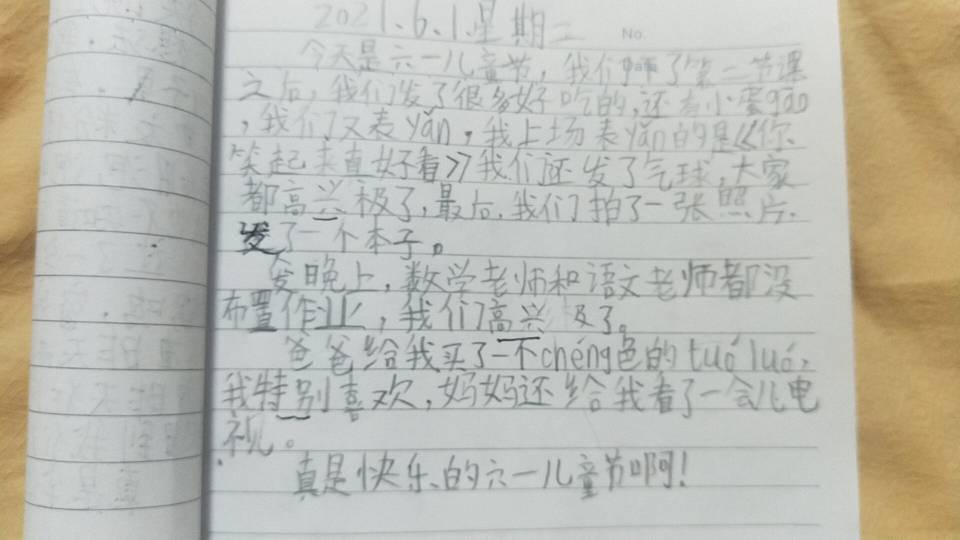 2021.6.1.星期二
No.
今天是六一儿童节，我们了第二节课
之后，我们发了很多好吃的，还有小蛋gāo
，我们又表yǎn，我上场表yǎn的是《你
笑起来真好看》我们还发了气球，大家
都高兴极了，最后，我们拍了一张照片，
发了一个本子。
晚上，数学老师和语文老师都没
布置作业，我们高兴极了。
爸爸给我买了一个chéng色的tuó luó，
我特别喜欢，妈妈还给我看了一会儿电
视。
真是快乐的六一儿童节啊！